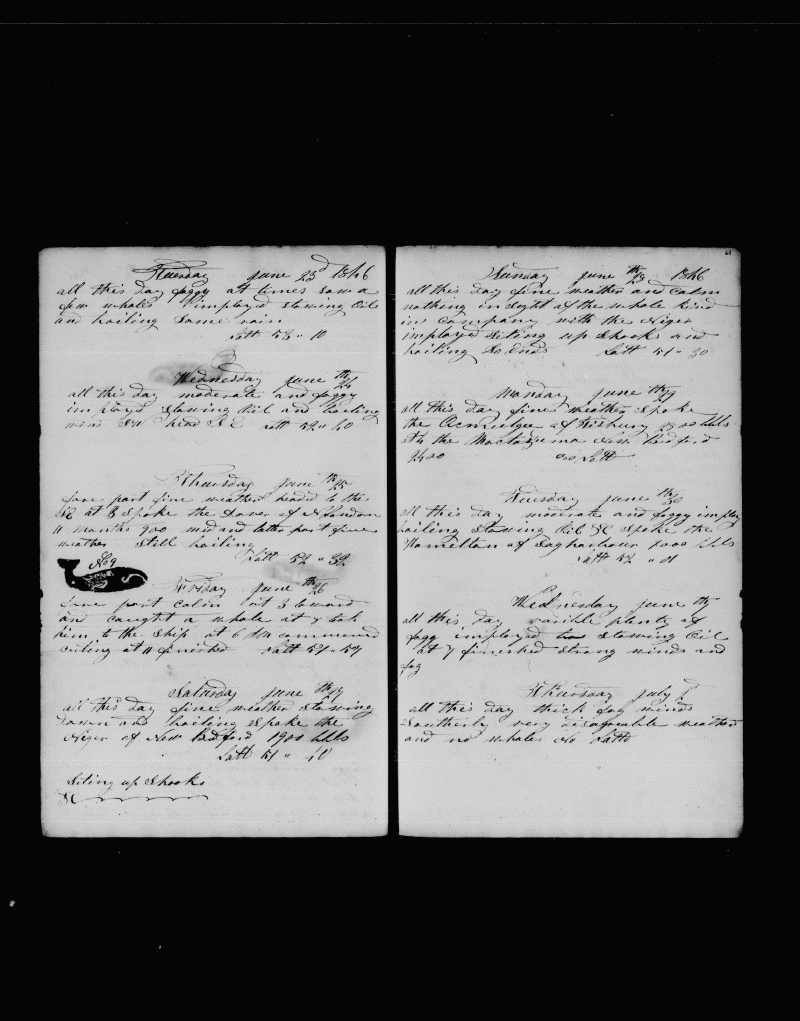 Tuesday June 23d 1846
all this day foggy at times saw a
few whales imployd stowing Oil
and boiling Some rain
Latt 53 " 10
Wednesday June th 24
all this day moderate and foggy
imployd Stowing Oil and boiling
wind SW head S E Latt 52 " 40
Thursday June th 25
fore part fine weather headed to the
at 8 Spoke the Dover of N London
11 months 900 mid and latter part fine
weather Still boiling
Latt 52 " 32
No 9
Friday June th 26
fore part calm at 3 lowerd
and caught a whale at 7 tok
him to the Ship at 6 AM commenced
cuting at 11 finished Latt 51 " 54
Saturday June th 27
all this day fine weather Stowing
down and boiling Spoke the
Niger of New Bedford 1900 bbls
Latt 51 " 40
Seting up Shooks
&C
61
Sunday June th 28 1846
all this day fine weather and calm
nothing in Sight of the whale kind
in company with the Niger
imployd Seting up Shooks and
boiling So Ends Latt 51 " 30
Monday June th 29
all this day fine weather Spoke
the Acmulgee of Tisbury bbls
the Mactazuma New Bedford
2400 no Latt
Tuesday June th 30
all this day moderate and foggy imploy
boiling Stowing Oil &C Spoke the
Hamelton of Sagharbour bbls
Latt 52 "
Wednesday June th
all this day plenty of
fogg employed Stowing Oil
at 7 finished Strong winds and
fog
Thursday July
all this day thick fog winds
Southerly very disagreable weather
and no whales No Latt